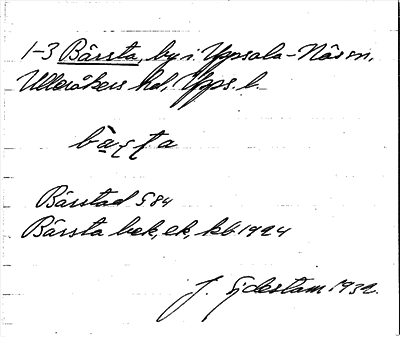 1-3 Bärsta, by i Uppsala-Näs sn,
Ulleråkers hd, Upps. l.
Bärstad § 84
Bärsta bek, ek, kb 1924
J. Gjdestam 1932.